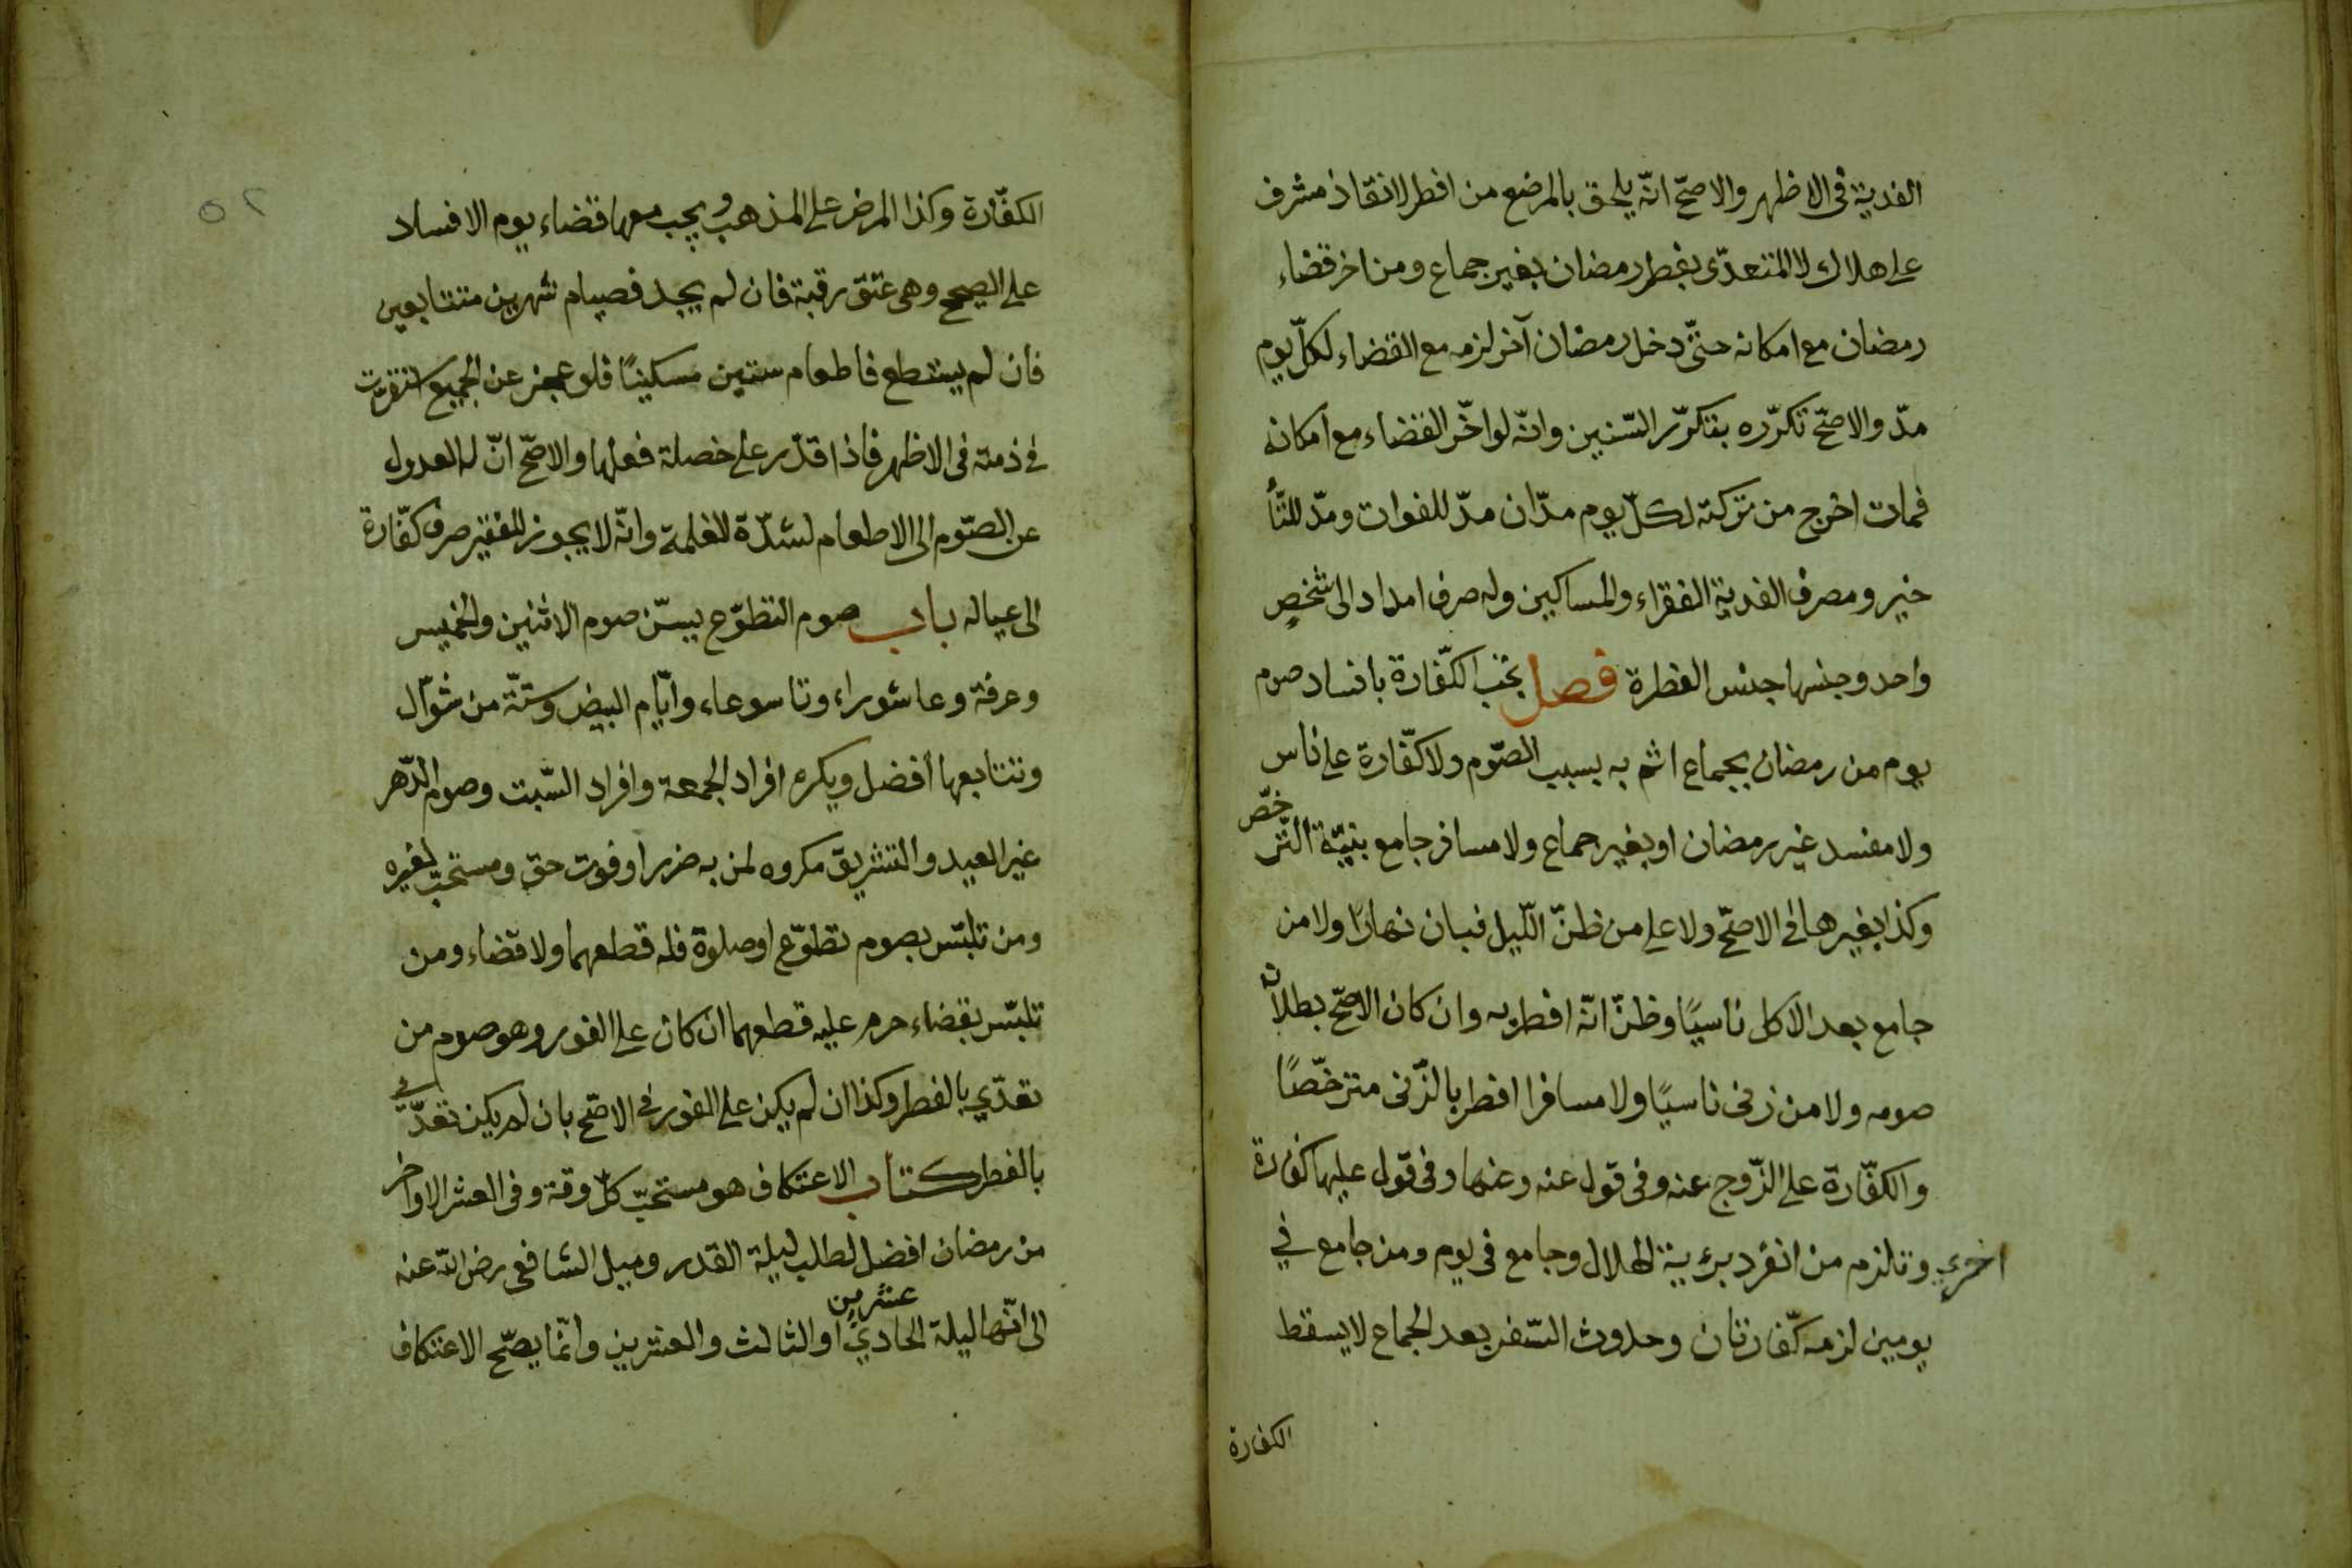 الفدية فى الاظهر والاصحّ انّه يلحق بالمرضع من افطر لانقاذ مشرف
على هلاك لا المتعدّى بفطر رمضان بغير جماع ومن اخر قضاء
رمضان مع امكانه حتّى دخل رمضان آخر لزمه مع القضاء لكلّ يوم
مدّ والاصحّ تكرّره بتكرّر السّنين وانّه لو اخّر القضاء مع امكانه
فمات اخرج من تركته لكلّ يوم مدّان مدّ للفوات ومدّ للتّأ
خير ومصرف الفدية الفقراء والمساكين وله صرف امداد الى شخصٍ
واحد وجنسها جنس الفطرة فصل تجب الكفّارة بافساد صوم
يوم من رمضان بجماع اثم به بسبب الصّوم ولا كفّارة على ناس
ولا مفسد غير رمضان او بغير جماع ولا مسافر جامع بنيّة التّرخّص
وكذا بغيرها فى الاصحّ ولا على من ظنّ اللّيل فبان نهارًا ولا من
جامع بعد الاكل ناسيًا وظنّ انّه افطر به وان كان الاصحّ بطلانه
صومه ولا من زنى ناسيًا ولا مسافرا افطر بالزّنى مترخّصًا
والكفّارة على الزّوج عنه وفى قول عنه وعنها وفى قول عليها كفارة
اخرى وتلزم من انفرد برؤية الهلال وجامع فى يوم ومن جامع في
يومين لزمه كفّارتان وحدوث السّفر بعد الجماع لا يسقط
الكفارة
٥٢
الكفّارة وكذا المرض على المذهب ويجب معها قضاء يوم الافساد
على الصحيح وهى عتق رقبة فان لم يجد فصيام شهرين متتابعين
فان لم يستطع فاطعام ستين مسكينًا فلو عجز عن الجميع استقرت
فى ذمته فى الاظهر فاذا قدر على خصلة فعلها والاصحّ انّ له العدول
عن الصّوم الى الاطعام لشدّة الغلمة وانّه لا يجوز للفقير صرف كفّارة
الى عياله باب صوم التطوّع يسنّ صوم الاثنين والخميس
وعرفة وعاشوراء وتاسوعاء وايّام البيض وستّة من شوّال
وتتابعها أفضل ويكره افراد الجمعة وافراد السّبت وصوم الدّهر
غير العيد والتشريق مكروه لمن به ضررا وفوت حق ومستحبّ لغيره
ومن تلبّس بصوم تطوّع او صلوة فله قطعهما ولا قضاء ومن
تلبّس بقضاء حرم عليه قطعهما ان كان على الفور وهو صوم من
تعدّي بالفطر وكذا ان لم يكن على الفور فى الاصحّ بان لم يكن تعدّى
بالفطر كتاب الاعتكاف هو مستحبّ كلّ وقت وفى العشر الاواخر
من رمضان افضل لطلب ليلة القدر وميل الشافعى رضى الله عنه
الى انّها ليلة الحادي عشرين او الثالث والعشرين وانّما يصّح الاعتكاف